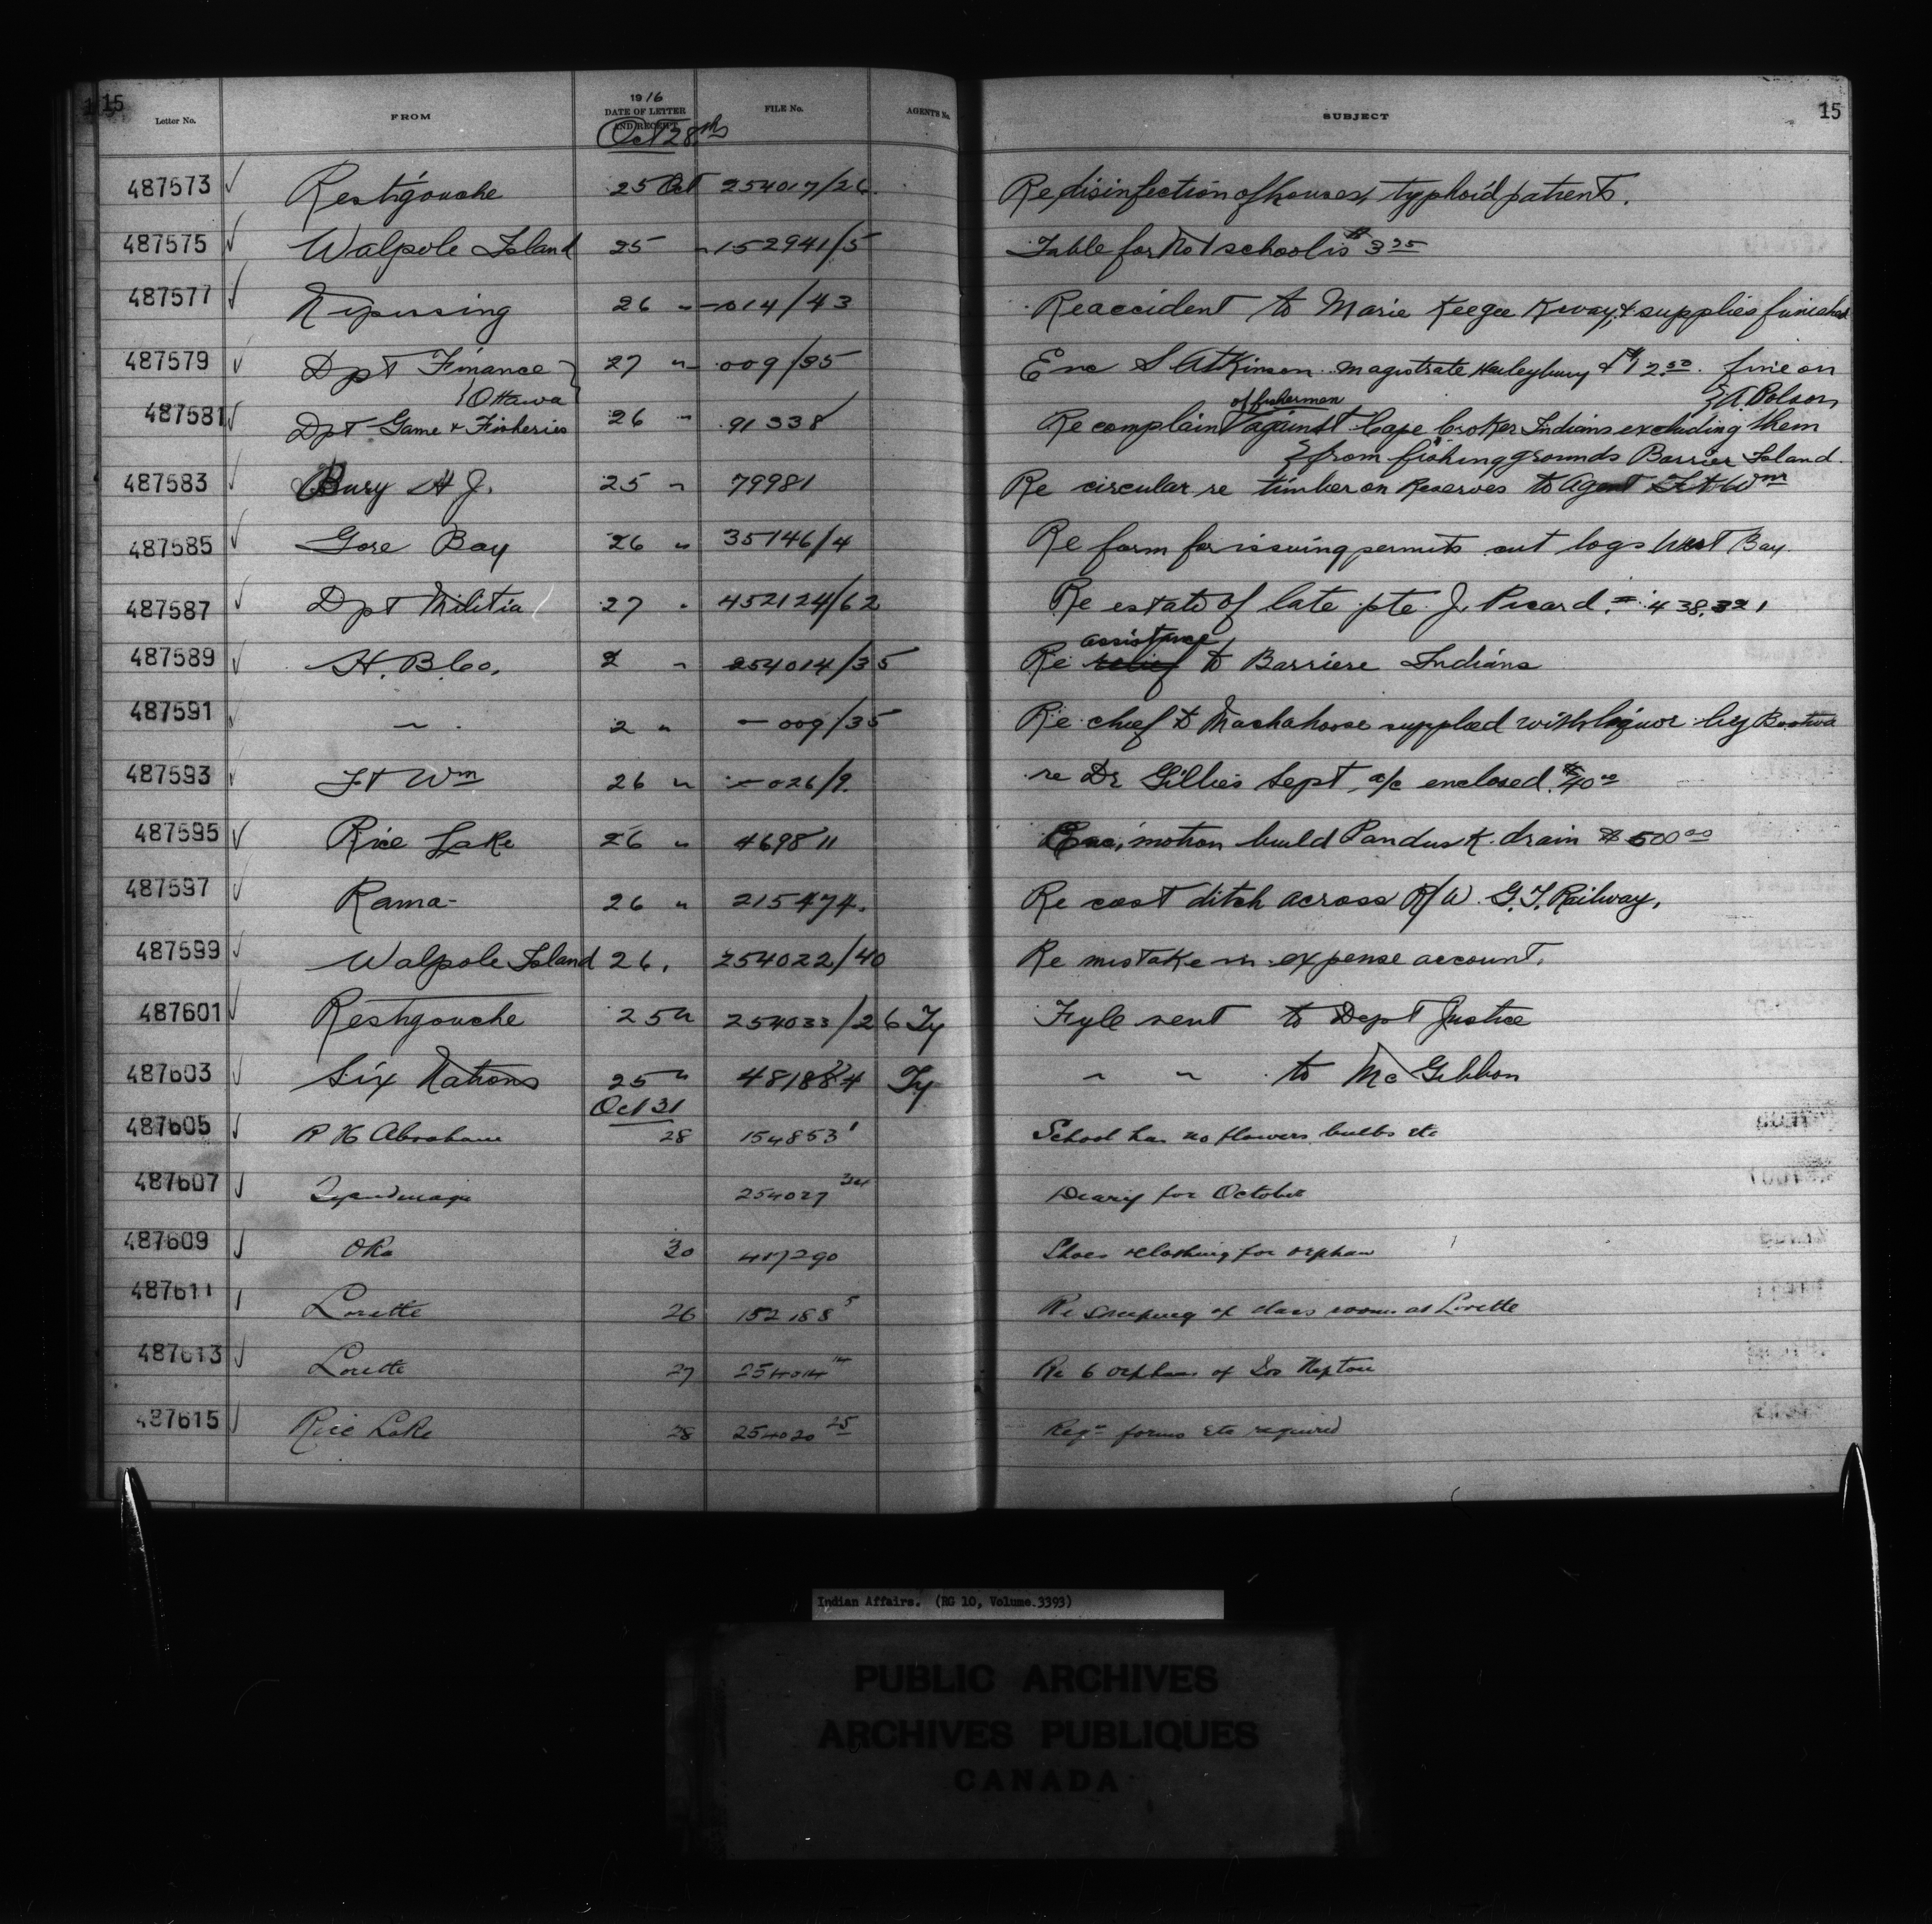 15
Letter No. FROM 1916 DATE OF LETTER AND RECEIPT FILE No. AGENTS No. SUBJECT 15
Oct 28th
487573 Restigouche 25 Oct 254017/26. Re disinfection of houses, typhoid patients.
487575 Walpole Island 25 " 152941/5 Table for No 1 school is $3 25
487577 Nipissing 26 " — 014/43 Re accident to Marie Keegee Kway, & supplies furnished
487579 Dpt Finance 27 " — 009/35 Enc S Atkinson magistrate Haileybury $12.50. fine on
Ottawa A. Polson
of fishermen
487581 Dpt Game & Fisheries 26 " 91338 Re complaint against Cape Croker Indians excluding them
from fishing grounds Barrier Island.
487583 Bury H J. 25 " 79981 Re circular re timber on Reserves to Agent Ft Wm
487585 Gore Bay 26 " 35146/4 Re form for issuing permits cut logs West Bay.
487587 Dpt Militia 27 " 452124/62 Re estate of late pte. J. Picard. 438,321
assistance
487589 H. B. Co. 2 " 254014/35 Re relief to Barriere Indians
487591 " 2 " — 009/35 Re chief & supplied with liquor by
487593 Ft Wm 26 " — 026/9. re Dr Gillies Sept a/c enclosed $40 00
487595 Rice Lake 26 " 469811 Enc. motion build drain $500 00
487597 Rama 26 " 215474. Re cost ditch across R/W G.T. Railway.
487599 Walpole Island 26. 254022/40 Re mistake in expense account.
487601 Restigouche 25 " 254033/26 Ty Fyle sent to Dept Justice
487603 Six Nations 25 " 481884 Ty " " to McGibbon
Oct 31
487605 R H Abraham 28 154853 1 School has no flowers bulbs etc
487607 Tyendinaga 254027 34 Diary for October
487609 Oka 30 417290 Shoes & clothing for orphan
487611 Lorette 26 152188 5 Re sweeping of class rooms at Lorette
487613 Lorette 27 254014 14 Re 6 orphans of
487615 Rice Lake 28 254020 25 Reqn forms etc required
Indian Affairs. (RG 10, Volume 3393)
PUBLIC ARCHIVES
ARCHIVES PUBLIQUES
CANADA